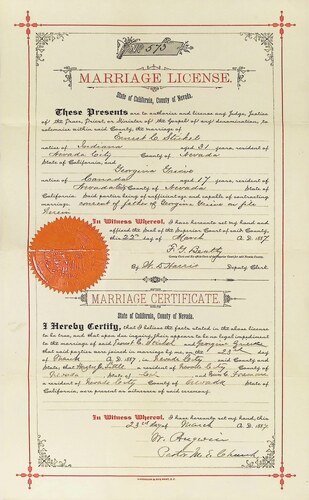 No. 573
MARRIAGE LICENSE.
State of California, County of Nevada.
These Presents are to authorize and license any Judge, Justice
of the Peace, Priest, or Minister of the Gospel of any denomination, to
solemnize within said County, the marriage of
Ernest C.
native of Indiana aged 31 years, resident of
Nevada City County of Nevada
State of California, and
Georgina
native of Canada aged 17 years, resident of
Nevada City County of Nevada State of
California. Said parties being of sufficient age and capable of contracting
marriage consent of father of Georgina on file
herein
In Witness Whereof, I have hereunto set my hand and
affixed the Seal of the Superior Court of said County,
this 22nd day of March A. D. 1887
F. G. Beatty
By W. D. Harris Deputy Clerk
MARRIAGE CERTIFICATE.
State of California, County of Nevada.
I Hereby Certify, that I believe the facts stated in the above license
to be true, and that upon due inquiry, there appears to be no legal impediment
to the marriage of said Ernest C. and Georgina
that said parties were joined in marriage by me, on the 23rd day
of March A. D. 1887 in Nevada City County and
State; that Little a resident of Nevada City County
of Nevada State of Cal and
a resident of Nevada City County of Nevada State of
California, were present as witnesses of said ceremony.
In Witness Whereof, I have hereunto set my hand, this
23rd day of March A. D. 1887
W. Angwin
Pastor M. E. Church